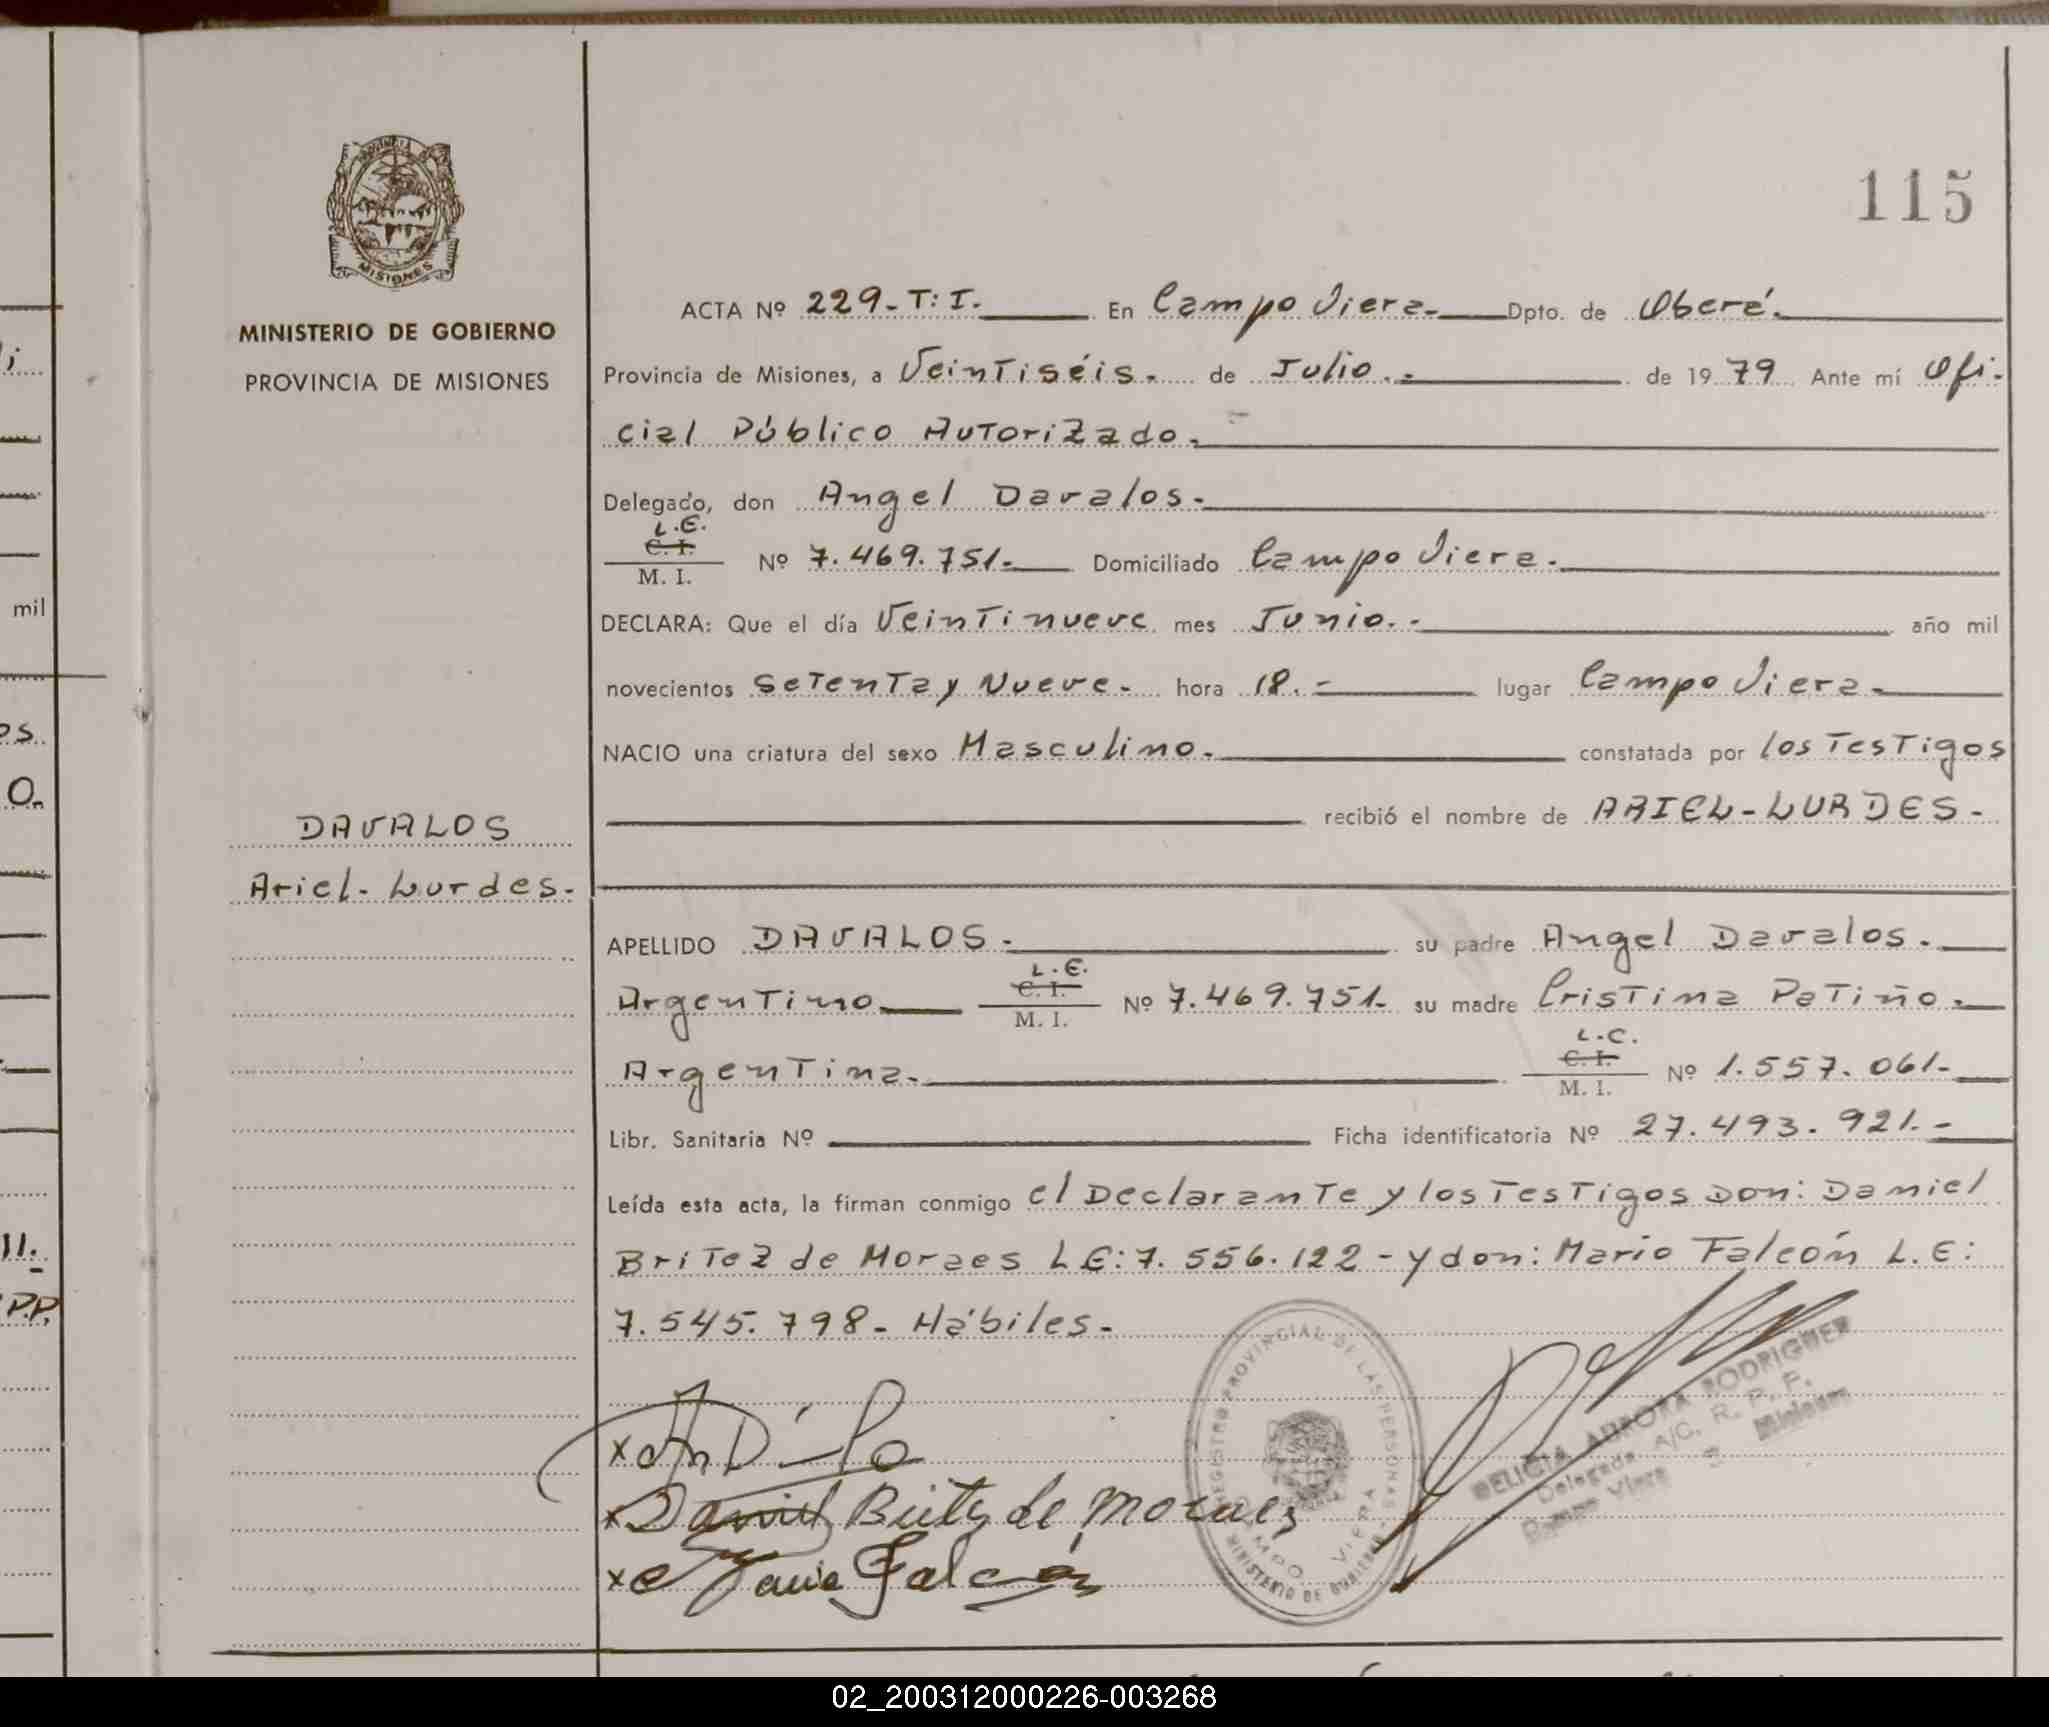 115
PROVINCIA DE
MISIONES
MINISTERIO DE GOBIERNO
PROVINCIA DE MISIONES
ACTA Nº 229-T:I. En Campo Viera. Dpto. de Oberá.
Provincia de Misiones, a Veintiséis. de Julio. de 1979 Ante mí Ofi-
cial Público Autorizado.
Delegado, don Angel Davalos.
L.E.
C. I.
M. I. Nº 7.469.751. Domiciliado Campo Viera.
DECLARA: Que el día Veintinueve mes Junio. año mil
novecientos Setenta y Nueve. hora 18. lugar Campo Viera
NACIO una criatura del sexo Masculino. constatada por los Testigos
recibió el nombre de ARIEL-LURDES-
DAVALOS
Ariel-Lurdes.
APELLIDO DAVALOS. su padre Angel Davalos.
L.E.
C. I.
Argentino M. I. Nº 7.469.751. su madre Cristina Patiño.
L.C.
C. I.
Argentina. M. I. Nº 1.557.061-
Libr. Sanitaria Nº Ficha identificatoria Nº 27.493.921.-
Leída esta acta, la firman conmigo el Declarante y los Testigos Don: Daniel
Britez de Moraes L E: 7.556.122 - y don: Mario Falcón L.E:
7.545.798- Hábiles-
x
x Daniel Britez de Moraes
x Mario Falcón
REGISTRO PROVINCIAL DE LAS PERSONAS
CAMPO VIERA
MINISTERIO DE GOBIERNO
RODRIGUEZ
Delegada A/C. R. P. P.
Campo Viera Misiones
mil
os.
O.
II.
P.P.
02_200312000226-003268